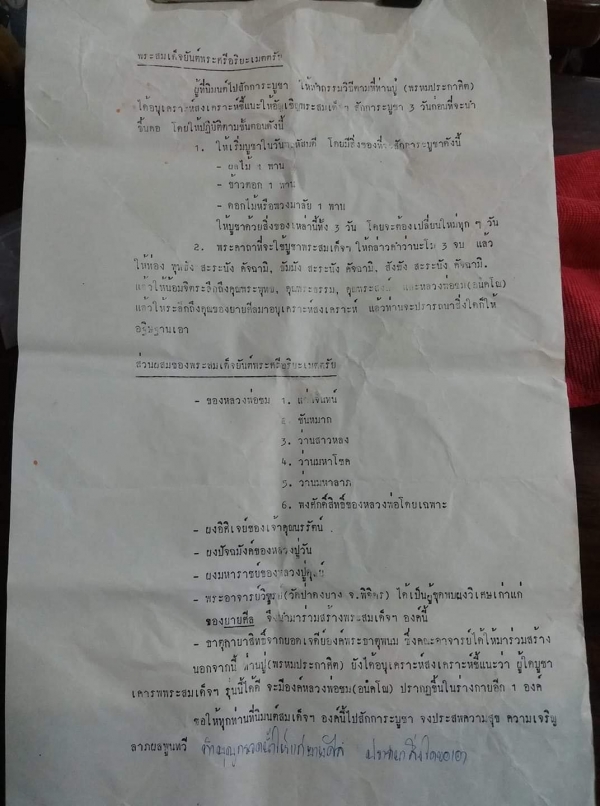 พระสมเด็จยันต์พระศรีอริยะเมตตรัย
ผู้ที่นิมนต์ไปสักการะบูชา ให้ทำกรรมวิธีตามที่ท่านปู่ (พรหมประกาศิต)
ได้อนุเคราะห์สงเคราะห์ชี้แนะให้อัญเชิญพระสมเด็จฯ สักการะบูชา 3 วันก่อนที่จะนำ
ขึ้นคอ โดยให้ปฏิบัติตามขั้นตอนดังนี้
1. ให้เริ่มบูชาในวันพฤหัสบดี โดยมีสิ่งของที่จะสักการะบูชาดังนี้
- ผลไม้ 1 พาน
- ข้าวตอก 1 พาน
- ดอกไม้หรือพวงมาลัย 1 พาน
ให้บูชาด้วยสิ่งของเหล่านี้ทั้ง 3 วัน โดยจะต้องเปลี่ยนใหม่ทุก ๆ วัน
2. พระคาถาที่จะใช้บูชาพระสมเด็จฯ ให้กล่าวคำว่านะโม 3 จบ แล้ว
ให้ท่อง พุทธัง สะระณัง คัจฉามิ, ธัมมัง สะระณัง คัจฉามิ, สังฆัง สะระณัง คัจฉามิ.
แล้วให้น้อมจิตระลึกถึงคุณพระพุทธ, คุณพระธรรม, คุณพระสงฆ์ และหลวงพ่อชม(อนังคโณ)
แล้วให้ระลึกถึงคุณของยายศีลมาอนุเคราะห์สงเคราะห์ แล้วท่านจะปรารถนาสิ่งใดก็ให้
อฐิษฐานเอา
ส่วนผสมของพระสมเด็จยันต์พระศรีอริยะเมตตรัย
- ของหลวงพ่อชม 1.
2. ชันหมาก
3. ว่านสาวหลง
4. ว่านมหาโชค
5. ว่านมหาลาภ
6. ผงศักดิ์สิทธิ์ของหลวงพ่อโดยเฉพาะ
- ผงอิทธิเจย์ของเจ้าคุณนรรัตน์
- ผงปัจฉมังค์ของหลวงปู่วัน
- ผงมหาราชย์ของหลวงปู่ดุลย์
- พระอาจารย์วิฑูรย์(วัดป่าดงยาง จ.พิจิตร) ได้เป็นผู้ขุดพบผงวิเศษเก่าแก่
ของยายศีล จึงนำมาร่วมสร้างพระสมเด็จฯ องค์นี้
- ธาตุกายาสิทธิ์จากยอดเจดีย์องค์พระธาตุพนม ซึ่งคณะอาจารย์ได้ให้มาร่วมสร้าง
นอกจากนี้ ท่านปู่(พรหมประกาศิต) ยังได้อนุเคราะห์สงเคราะห์ชี้แนะว่า ผู้ใดบูชา
เคารพพระสมเด็จฯ รุ่นนี้ได้ดี จะมีองค์หลวงพ่อชม(อนังคโณ) ปรากฏขึ้นในร่างกายอีก 1 องค์
ขอให้ทุกท่านที่นิมนต์สมเด็จฯ องค์นี้ไปสักการะบูชา จงประสพความสุข ความเจริญ
ลาภผลพูนทวี ปรารถนาสิ่งใดขอเอา